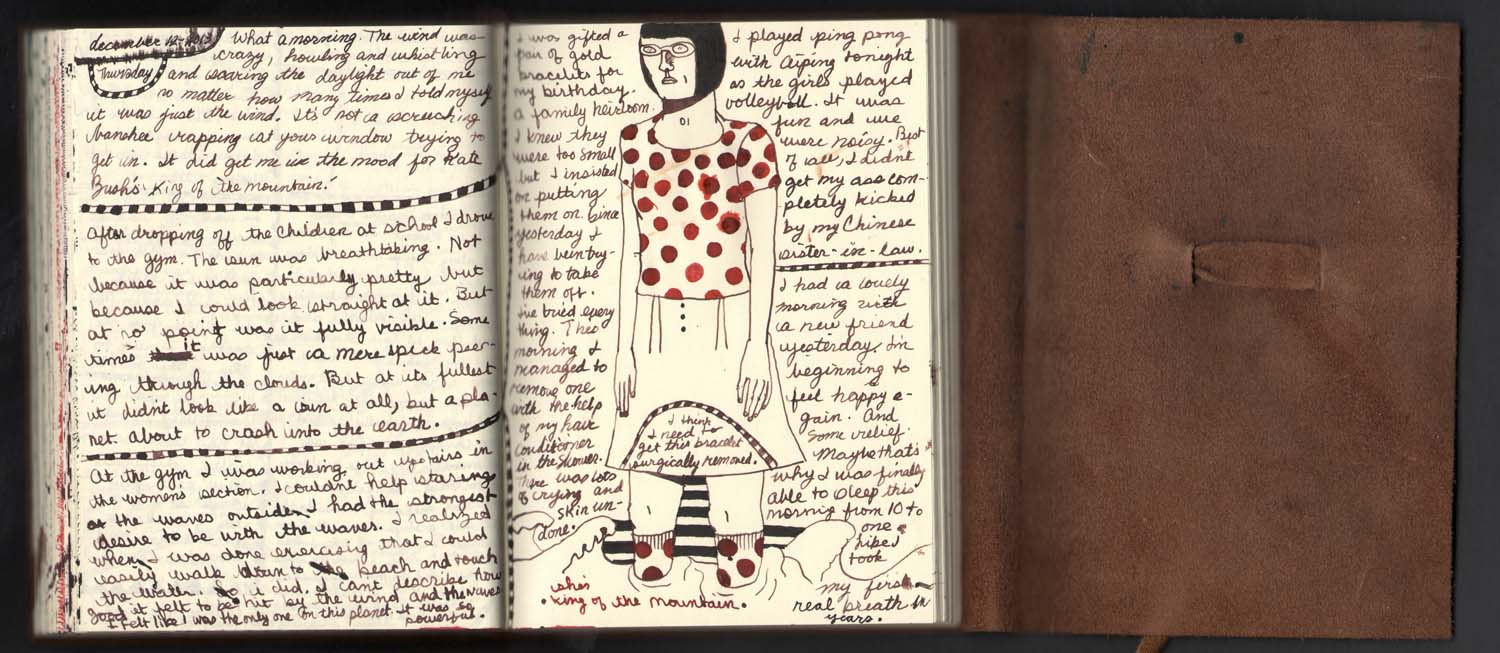 december 12 - 2013
Thursday
What a morning. The wind was
crazy, howling and whistling
and scaring the daylight out of me
no matter how many times I told myself
it was just the wind. It's not a screeching
banshee rapping at your window trying to
get in. It did get me in the mood for Kate
Bush's 'King of the mountain.'
After dropping off the children at school I drove
to the gym. The sun was breathtaking. Not
because it was particularly pretty but
because I could look straight at it. But
at no point was it fully visible. Some
times it was just a mere speck peer-
ing through the clouds. But at its fullest
it didn't look like a sun at all, but a pla-
net about to crash into the earth.
At the gym I was working out upstairs in
the womens section. I couldn't help staring
at the waves outside. I had the strongest
desire to be with the waves. I realized
when I was done exercising that I could
easily walk down to the beach and touch
the water. So i did. I can't describe how
good it felt to be hit by the wind and the waves
I felt like I was the only one on this planet. It was so
powerful.
I was gifted a
pair of gold
bracelets for
my birthday.
a family heirloom.
I knew they
were too small
but I insisted
on putting
them on. Since
yesterday I
have been try-
ing to take
them off.
I've tried every
thing. This
morning I
managed to
remove one
with the help
of my hair
conditioner
in the shower.
There was lots
of crying and
skin un-
done.
I think
I need to
get this bracelet
surgically removed.
she's
• king of the mountain •
I played ping pong
with Aiping tonight
as the girls played
volleyball. It was
fun and we
were noisy. Best
of all, I didn't
get my ass com-
pletely kicked
by my Chinese
sister-in-law.
I had a lovely
morning with
a new friend
yesterday. I'm
beginning to
feel happy a-
gain. And
some relief.
Maybe that's
why I was finally
able to sleep this
morning from 10 to
one
took
my first
real breath in
years.